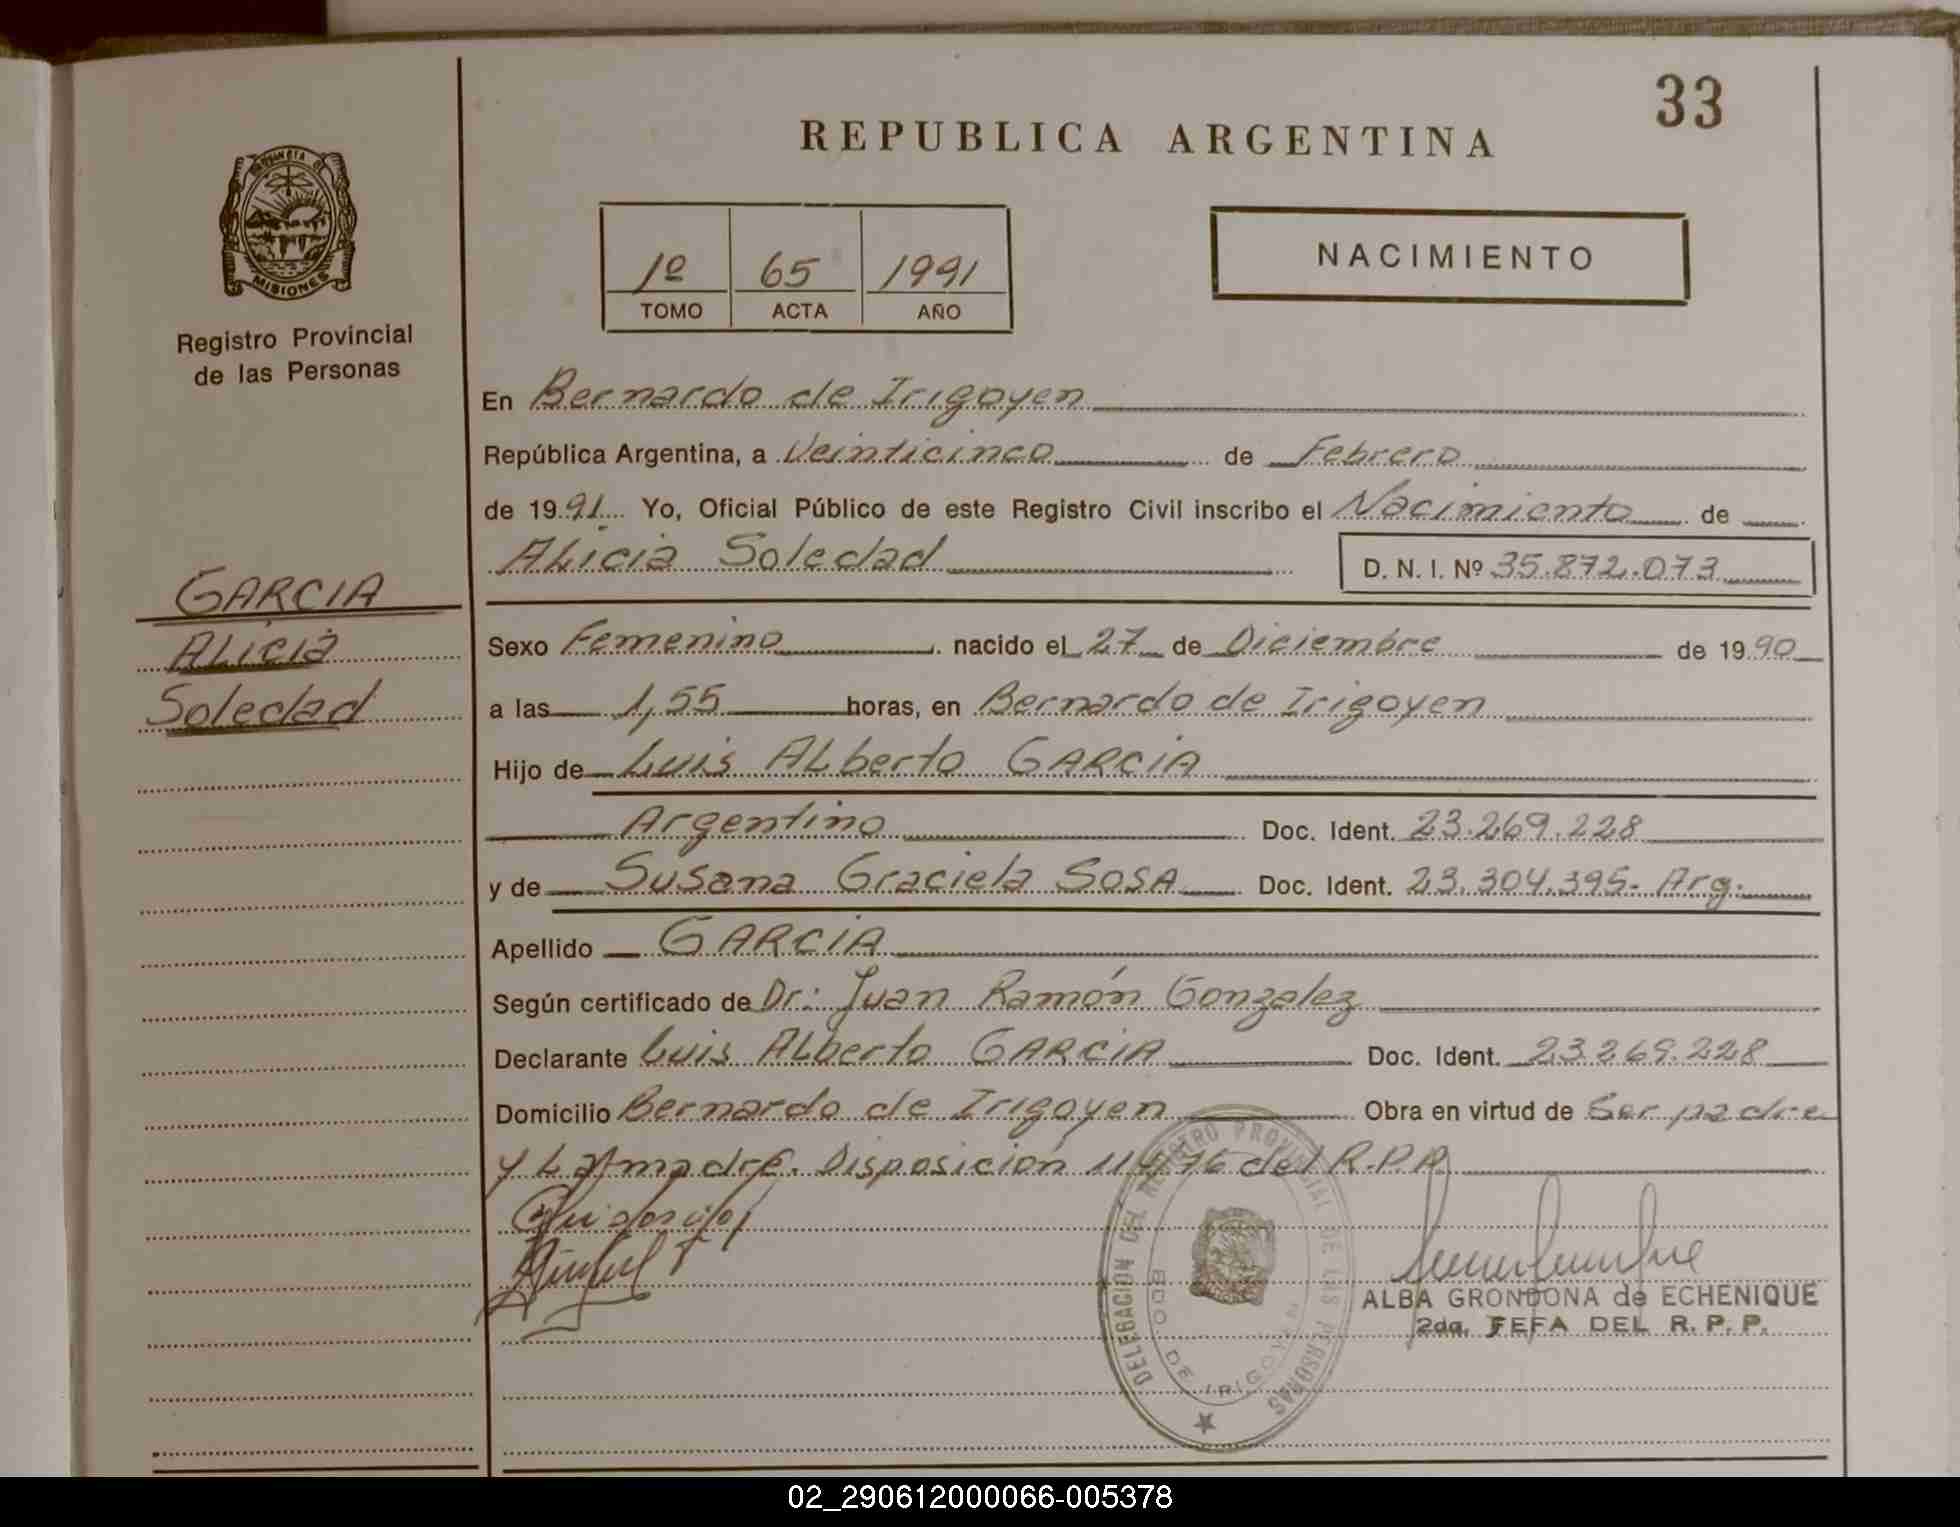 33
REPUBLICA ARGENTINA
MISIONES
Registro Provincial
de las Personas
1º 65 1991
TOMO ACTA AÑO
NACIMIENTO
En Bernardo de Irigoyen
República Argentina, a Veinticinco de Febrero
de 1991. Yo, Oficial Público de este Registro Civil inscribo el Nacimiento de
Alicia Soledad D. N. I. Nº 35.872.073
GARCIA
Alicia
Soledad
Sexo Femenino nacido el 27 de Diciembre de 1990
a las 1,55 horas, en Bernardo de Irigoyen
Hijo de Luis Alberto GARCIA
Argentino Doc. Ident. 23.269.228
y de Susana Graciela SOSA Doc. Ident. 23.304.395- Arg.
Apellido GARCIA
Según certificado de Dr: Juan Ramón Gonzalez
Declarante Luis Alberto GARCIA Doc. Ident. 23.269.228
Domicilio Bernardo de Irigoyen Obra en virtud de Ser padre
y La madre. Disposición 11/76 del R.P.P.
DELEGACION DEL REGISTRO PROVINCIAL DE LAS PERSONAS
BDO. DE IRIGOYEN
ALBA GRONDONA de ECHENIQUE
2da. JEFA DEL R. P. P.
02_290612000066-005378